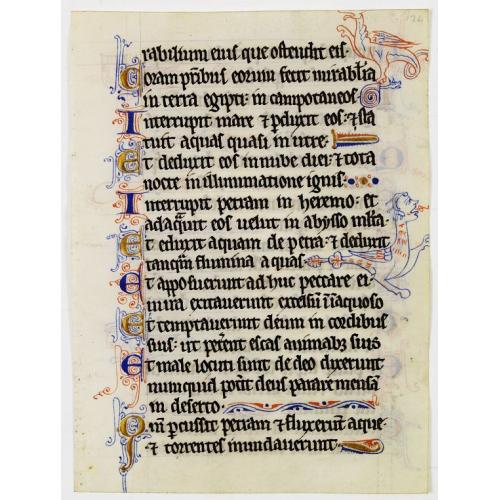 124
rabilium eius que ostendit eis
Coram pribus eorum fecit mirabilia
in terra egipti: in campo taneos
Interrupit mare ⁊ pduxit eos: ⁊ sta
tuit aquas quasi in utre:
Et deduxit eos in nube diei: ⁊ tota
nocte in illuminatione ignis:
Interrupit petram in heremo: et
adaquit eos uelut in abysso mlta
Et eduxit aquam de petra: ⁊ deduxit
tanqm flumina aquas
Et apposuerunt adhuc peccare ei
in ira excitauerunt excelsum
Et temptauerunt deum in cordibus
suis: ut peterent escas animabz suis
Et male locuti sunt de deo dixerunt
nunquid potit deus parare mensa
in deserto
Qm percussit petram ⁊ fluxerunt aque
⁊ torrentes inundauerunt